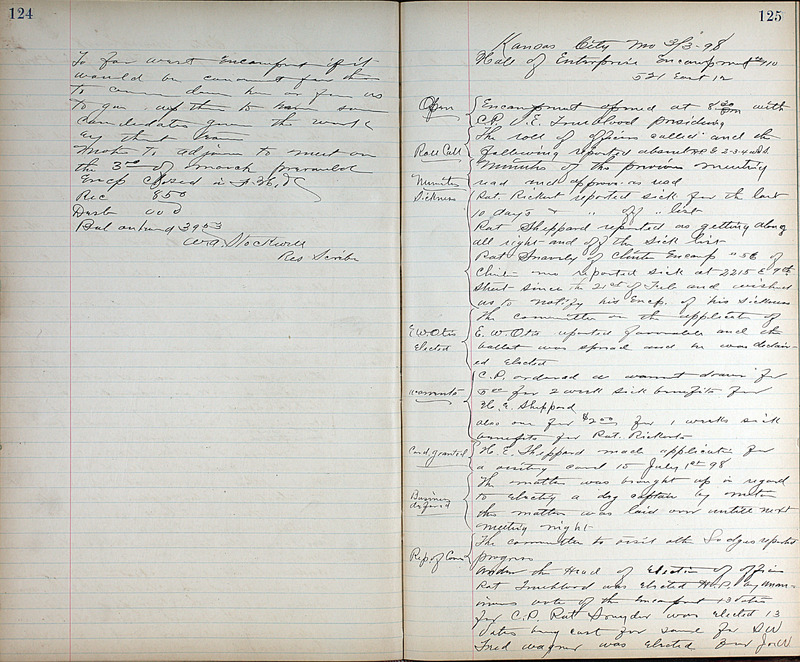 124
To far west Encampt if it
would be convenient for them
to come down here as far as
to give us them to have some
candidates given the work
by that team
Moved To adjorn to meet on
the 3rd of march prevailed
Encp closed in F. H. &
Rec 850
Dusb 000
Bal on hand 3903
W A Stockwell
Rec Scribe
125
Kansas City Mo 3/3-98
Hall of Enterprise Encampment No 10
521 East 12
Open Encampment opened at 8 30 PM with
C.P. V.E. Trueblood presiding
The roll of officers called and the
Roll Call following reported absent H.P. & 2-3-4 Wd
Minutes Minutes of the previous meeting
read and approv. as read
Sickness Pat. Rickert reported sick for the last
10 days " " off " list
Pat Sheppard reported as getting along
all right and off the sick list
Pat Snavely of Clinton Encamp " 56 of
Clint mo reported sick at 2215 E 9th
Street since the 21st of Feb and wished
us to notify his Encp. of his sickness
The committee on the application of
E.W. Otis E. W. Otis reported favorable and the
Elected ballot was spread and he was declair
ed elected
C.P. ordered a warrant drawn for
warrants 5 00 for 2 week sick benefits for
H. E. Sheppard
also one for $2 50 for 1 weeks sick
benefits for Pat. Rickerts
Card granted H. E. Sheppard made application for
a visiting card to July 1st 98
The matter was brought up in regard
Business to electing a deg captain by motion
defered this matter was laid over untill next
meeting night
The committee to visit other Lodges reported
Rep. of Com progress
under the Head of Election of officers
Pat Trueblood was elected H.P. by unan
imous vote of the Encampt 13 votes
for C.P. Pat Snyder was elected 13
votes being cast for same for S W
Fred Wagner was elected for J.W.